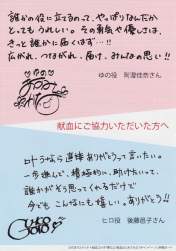 誰かの役に立てるのって、やっぱりなんだか
とってもうれしい。その勇気や優しさは、
きっと誰かに届くはず…!!
広がれ、つながれ、届け、みんなの思い!!
ゆの役 阿澄佳奈さん
献血にご協力いただいた方へ
叶うなら直接ありがとうって言いたい。
一歩進んで、積極的に、助けたいって、
誰かがどう思ってくれるだけで
今でも こんなにも嬉しい。ありがとう。
ヒロ役 後藤邑子さん